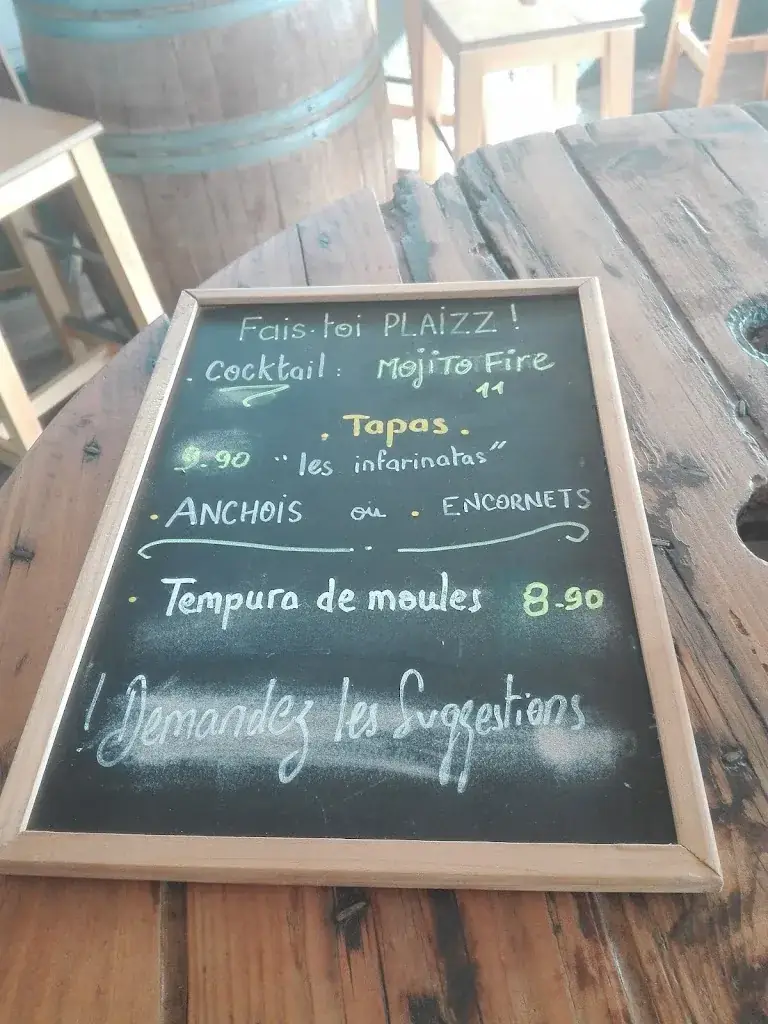 Fais-toi PLAIZZ !
. Cocktail : Mojito Fire
11
. Tapas .
9.90 "les infarinatas"
• ANCHOIS ou • ENCORNETS
• Tempura de moules 8.90
! Demandez les Suggestions